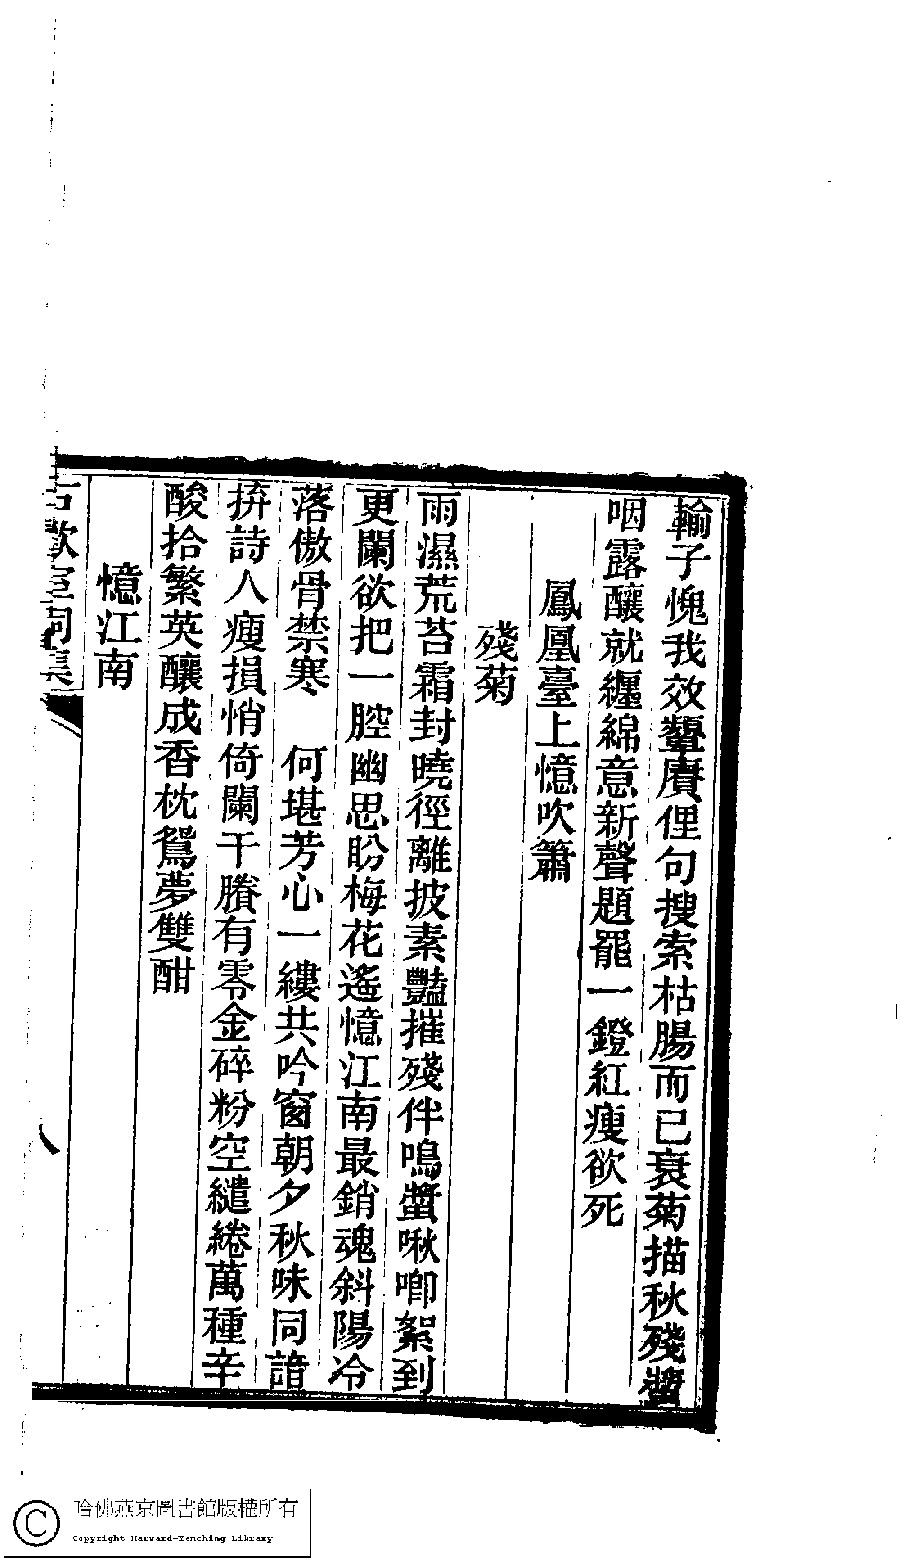 輸子愧我效顰賡俚句搜索枯腸而已衰菊描秋殘螿
咽露釀就纏綿意新聲題罷一鐙紅瘦欲死
鳳凰臺上憶吹簫
殘菊
雨濕荒苔霜封曉徑離披素豔摧殘伴鳴螿啾唧絮到
更闌欲把一腔幽思盼梅花遙憶江南最銷魂斜陽冷
落傲骨禁寒　何堪芳心一縷共吟窗朝夕秋味同諳
拚詩人瘦損悄倚闌干賸有零金碎粉空繾綣萬種辛
酸拾繁英釀成香枕鴛夢雙酣
憶江南
古歡室詞集
八
哈佛燕京圖書館版權所有
Copyright Harvard-Yenching Library